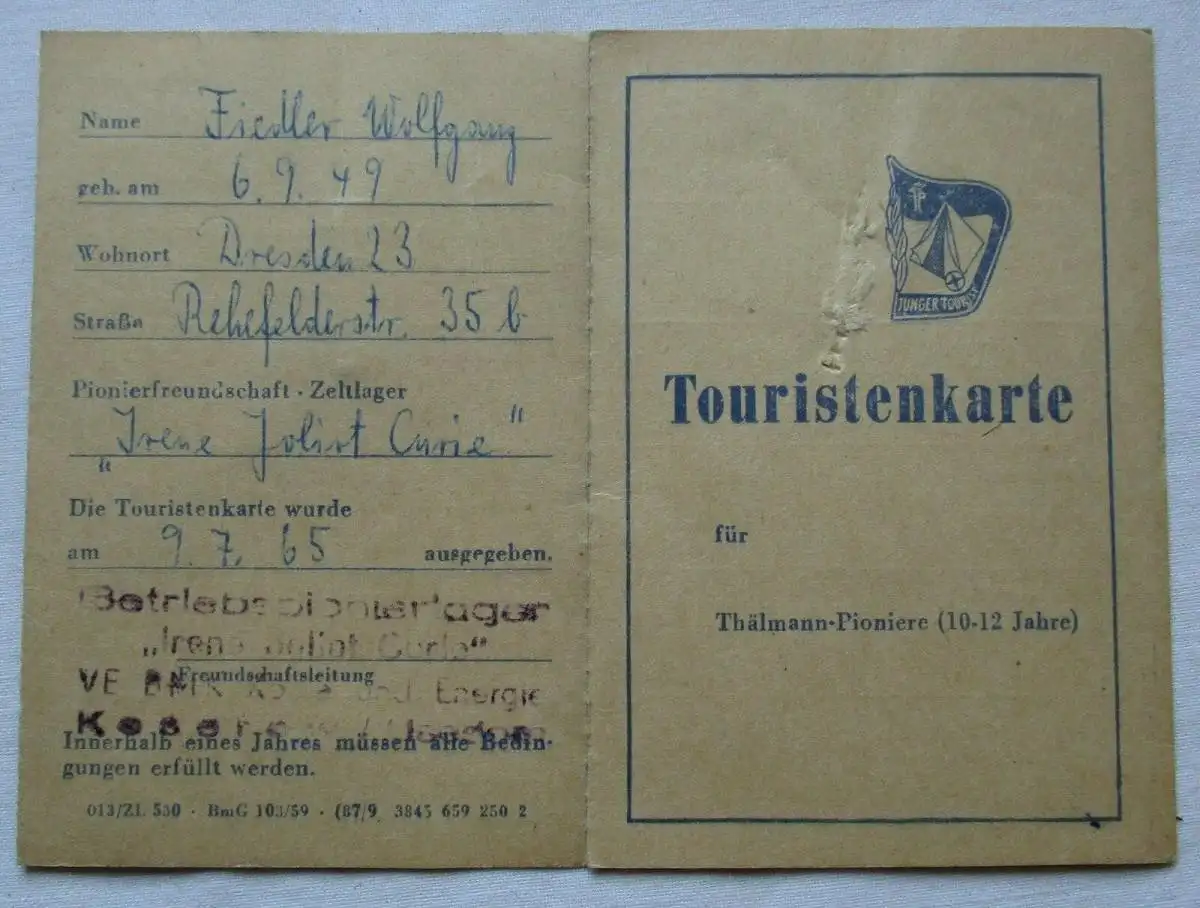 Name Fiedler Wolfgang
geb. am 6. 9. 49
Wohnort Dresden 23
Straße Rehefelderstr. 35 b
Pionierfreundschaft · Zeltlager
„Irene Joliot Curie“
Die Touristenkarte wurde
am 9. 7. 65 ausgegeben.
Betriebspionierlager
„Irene Joliot Curie“
Freundschaftsleitung
VE BMK Kohle und Energie
Innerhalb eines Jahres müssen alle Bedin-
gungen erfüllt werden.
013/ZL 530 · BmG 103/59 · (87/9) 3845 659 250 2
JP
JUNGER TOURIST
Touristenkarte
für
Thälmann-Pioniere (10-12 Jahre)